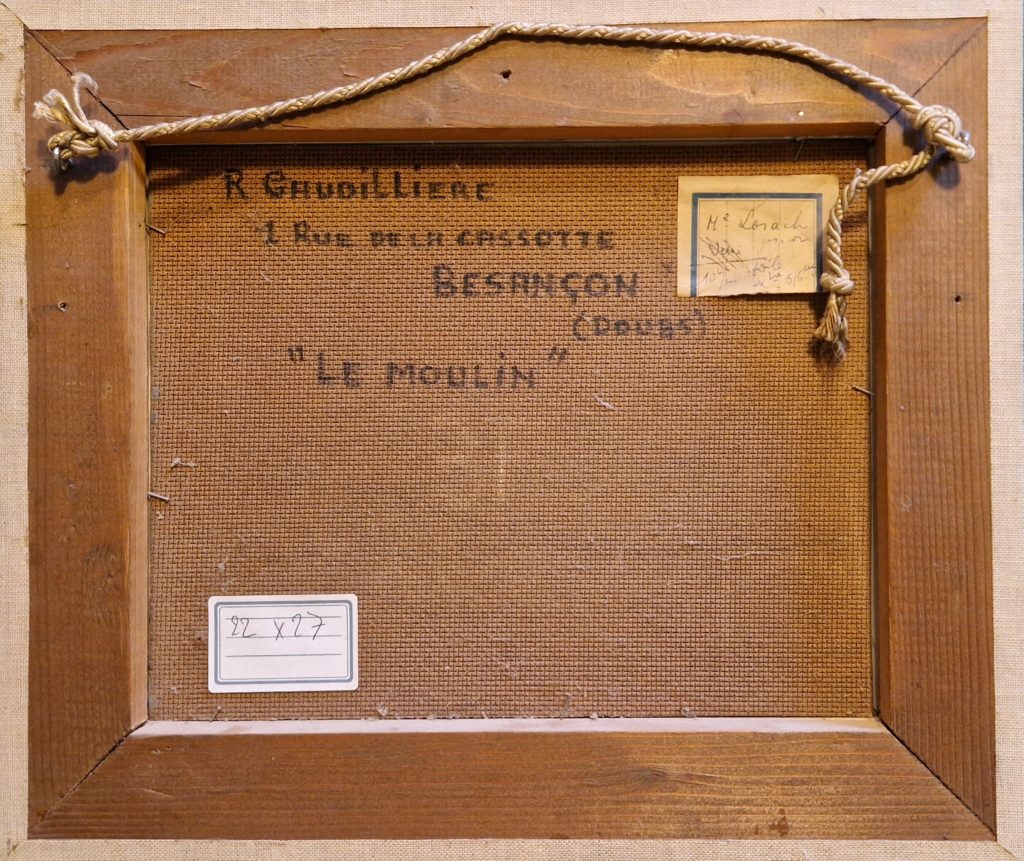 R GAUDILLIERE
1 RUE DE LA CASSOTTE
BESANÇON
(DOUBS)
"LE MOULIN"
Me Lorach
22 x 27